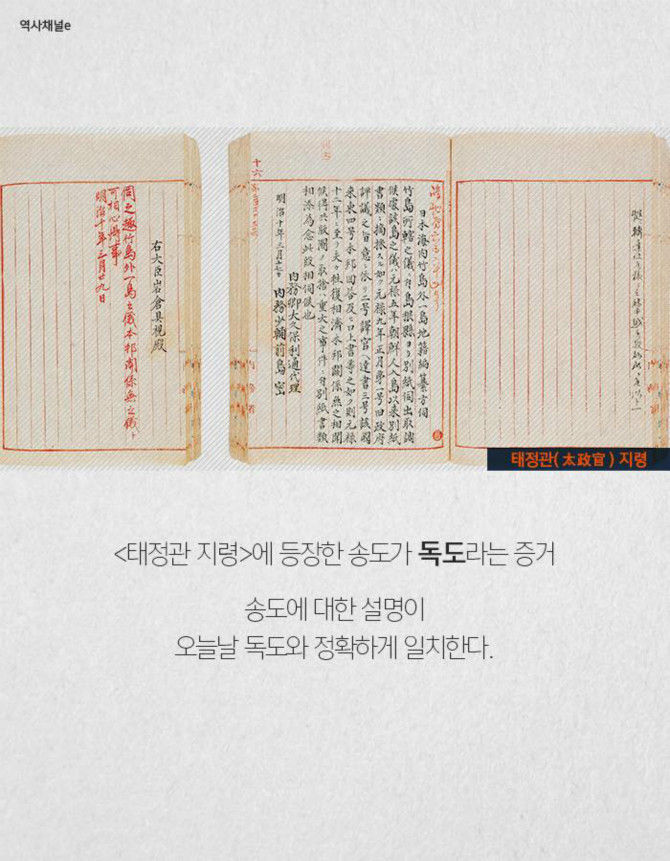 역사채널e
日本海内竹島外一島地籍編纂方伺
竹島所轄之儀ニ付島根縣ヨリ別紙伺出取調
候處該島之儀ハ元禄五年朝鮮人入島以来別紙
書類ニ摘採スル如ク元禄九年正月第一号旧政府
評議之旨意ニ依リ二号譯官ヘ達書三号該國
来柬四号本邦回答及ヒ口上書等之如ク則元禄
十二年ニ至リ夫々往復相済本邦關係無之相聞
候得共版圖ノ取捨ハ重大之事件ニ付別紙書類
相添為念此段相伺候也
明治十年三月十七日
内務卿大久保利通代理
内務少輔前島密
右大臣岩倉具視殿
伺之趣竹島外一島之儀本邦関係無之儀ト
可相心得事
明治十年三月廿九日
태정관( 太政官 ) 지령
<태정관 지령>에 등장한 송도가 독도라는 증거
송도에 대한 설명이
오늘날 독도와 정확하게 일치한다.